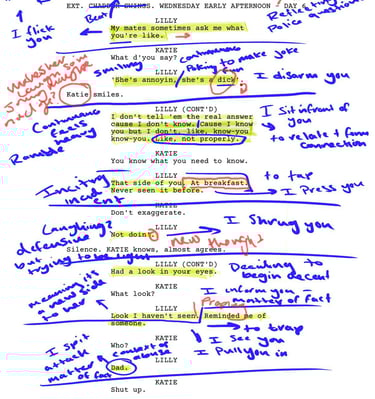 EXT. CHADDER SWINGS. WEDNESDAY EARLY AFTERNOON DAY 6
Reflecting
Police questions
I flick
you
Beat
LILLY
My mates sometimes ask me what
you're like.
KATIE
What d'you say?
continuous
Poking to make joke
fun
Smiling
LILLY
'She's annoyin, she's a dick'
I disarm you
Katie smiles.
Continuous
feels
heavy
Ramble
LILLY (CONT'D)
I don't tell 'em the real answer
cause I don't know. Cause I know
you but I don't, like, know-you
know-you. Like, not properly.
I sit infront of
you
to relate & form
connection
KATIE
You know what you need to know.
Inciting
incident
LILLY
That side of you. At breakfast.
Never seen it before.
to tap
I Press you
KATIE
Don't exaggerate.
Laughing?
defensive
but trying to be light
LILLY
Not doin'.
I Shrug you
new thought
Silence. KATIE knows, almost agrees.
LILLY (CONT'D)
Had a look in your eyes.
Deciding to
begin decent
KATIE
What look?
I inform you -
matter of fact
meaning its
a new side
to her
LILLY
Look I haven't seen. Reminded me of
someone.
to trap
I See you
I Pull you in
KATIE
Who?
I spit
attack
matter of fact
context of
abuse
LILLY
Dad.
KATIE
Shut up.